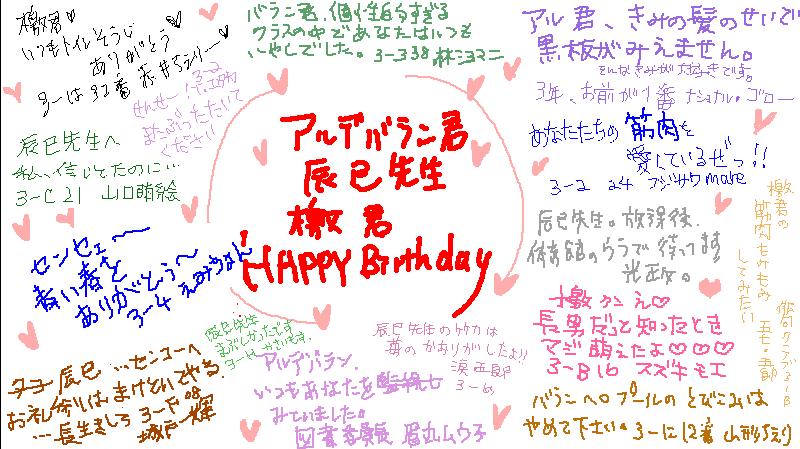 檄君♡
いつもトイレそうじ
ありがとう
3-は 32番 赤井ちえりー
せんせー!3-2
またぶったたいて
ください
バラン君、個性的すぎる
クラスの中であなたはいつも
いやしでした。
3-338 林ヨマニ
アル君、きみの髪のせいで
黒板がみえません。
そんなきみが大好きです。
3年、お前が1番 ナショナル・ゴロー
辰巳先生へ
私、信じてたのに…
3-C 21 山口萌絵
アルデバラン君
辰巳先生
檄君
HAPPY Birthday
あなたたちの筋肉を
愛しているぜっ!!
3-2 24 フジサワmare
檄君の
筋肉もみもみ
してみたい
俳句クラブ3-B
五七・五郎
センセェ〜
青い春を
ありがとう〜
3-4 えみりょん
辰巳先生。放課後、
体育館のウラで待ってます
光政。
檄かえ♡
長男だって知ったとき
マジ萌えたよ♡♡♡
3-B16 スズキモエ
辰巳先生
まぶしかったです
辰巳先生のトサカは
尊のかありがしたよ!!
3-6
辰巳…センコーへ
お礼参りはまけといてやる
…長生きしろ 3-F 08
城戸 輝
アルデバラン、
いつもあなたを
みていました。
図書委員長 眉丸ムウ子
バランへ♡プールのとびこみは
やめて下さい。3-に12番 山形ちえり